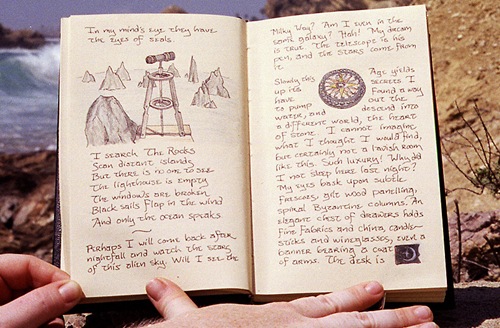 In my mind's eye they have
the eyes of seals.
I search The Rocks
Scan distant islands
But there is no one to see
The lighthouse is empty
The windows are broken
Black sails flap in the wind
And only the ocean speaks
Perhaps I will come back after
nightfall and watch the stars
of this alien sky. Will I see the
Milky Way? Am I even in the
same galaxy? Hah! My dream
is true. The telescope is his
pen, and the stars come from
Slowly this Age yields
up its secrets I
have Found a way
to pump out the
water, and descend into
a different world, the heart
of stone. I cannot imagine
what I thought I would find,
but certainly not a lavish room
like this. Such luxury! Why did
I not sleep here last night?
My eyes bask upon subtle
frescoes, gilt wood panelling,
spiral Byzantine columns. An
elegant chest of drawers holds
fine fabrics and china, candle-
sticks and wineglasses, even a
banner bearing a coat
of arms. The desk is